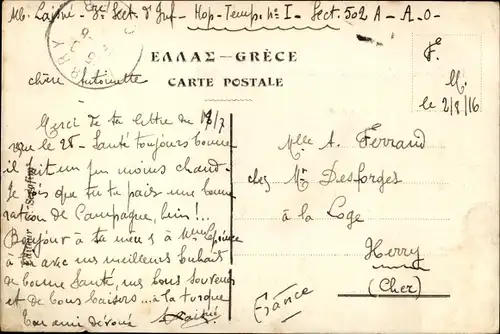 Hop-Temp. nº I - Sect. 502 A - A. O -
ΕΛΛΑΣ - GRÈCE
CARTE POSTALE
F.
M.
le 2/8/16
chère Antoinette
Merci de ta lettre du 18/7
reçue le 28 - Santé toujours bonne
il fait un peu moins chaud -
Je vois que tu fais une bonne
ration de Campagne, hein!..
Bonjour à ta mère, à
avec mes meilleurs souhaits
de bonne Santé, mes bons souvenirs
et de bons baisers... à la turque
Ton ami dévoué
Mlle A. Ferrand
chez Mr Desforges
à la Loge
Herry
(Cher)
France